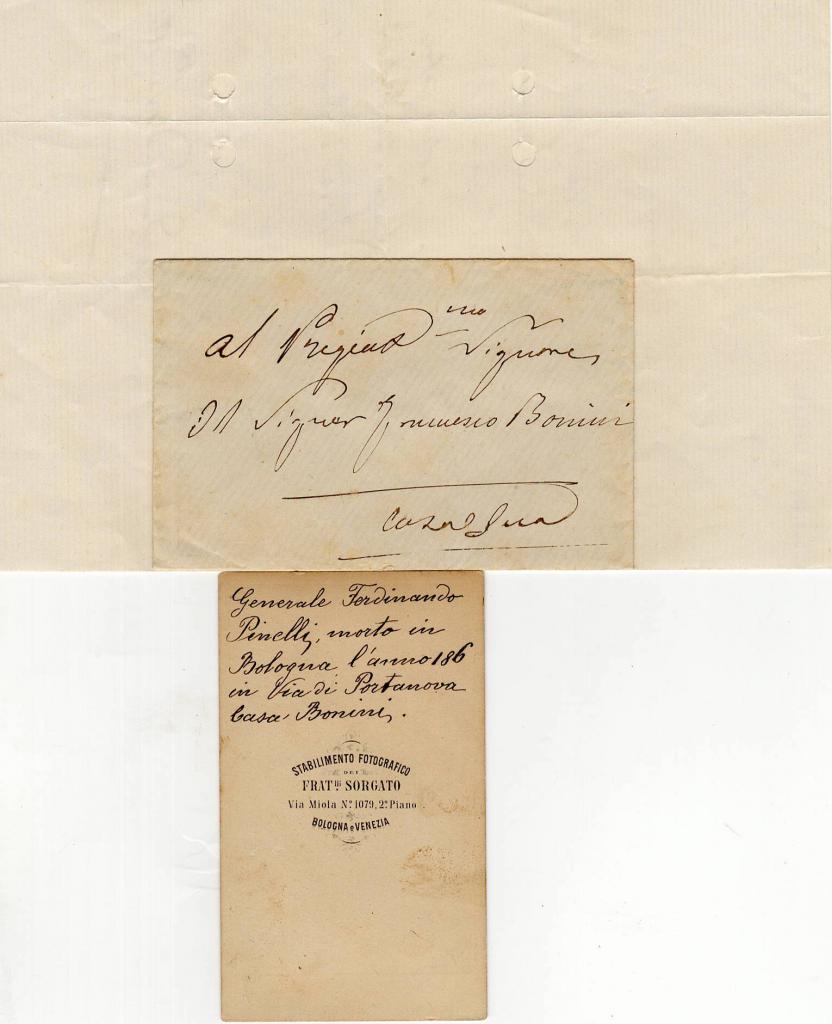 al Pregiat.mo Signore
Il Signor Francesco Bonini
Casa Sua
Generale Ferdinando
Pinelli, morto in
Bologna l'anno 186
in Via di Portanova
Casa Bonini.
STABILIMENTO FOTOGRAFICO
DEI
FRAT.lli SORGATO
Via Miola N.º 1079, 2.º Piano
BOLOGNA e VENEZIA